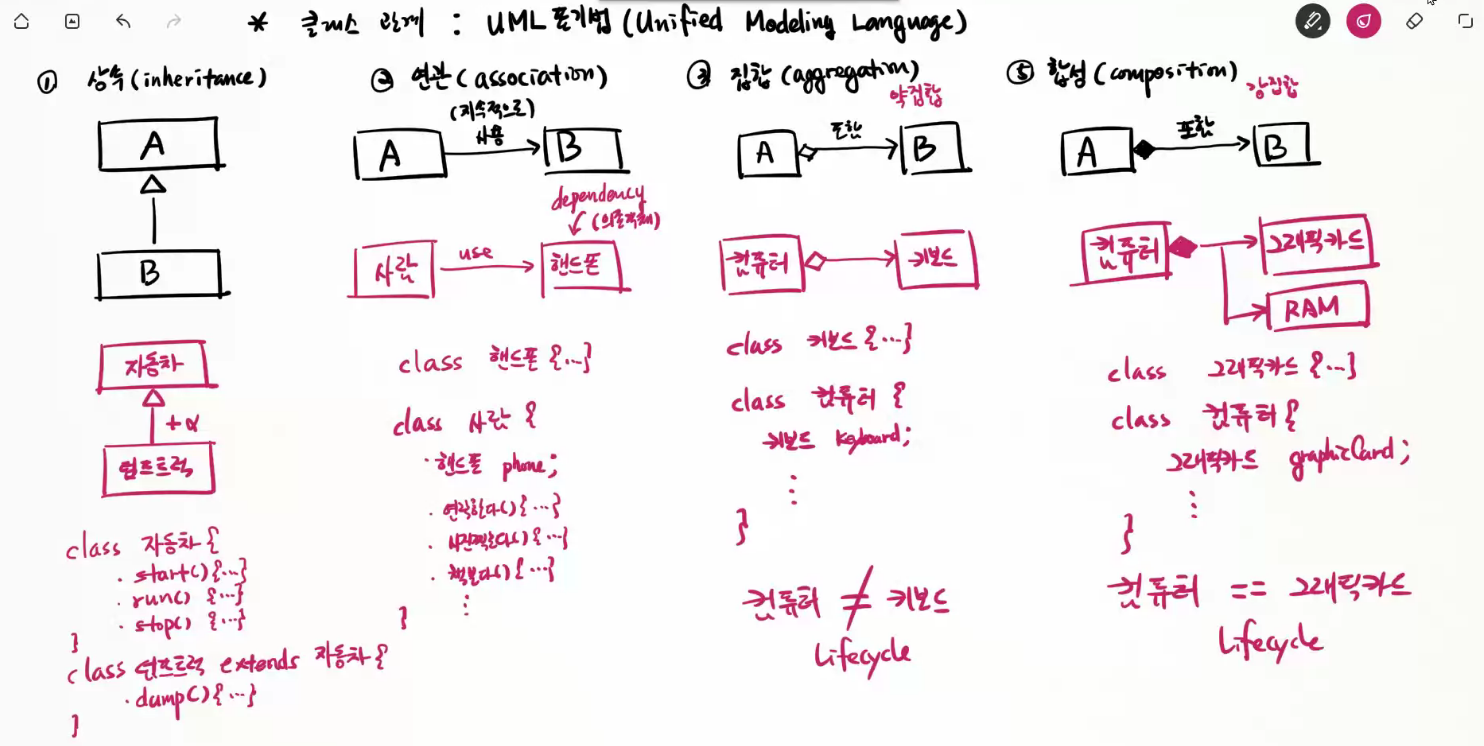 * 클래스 관계 : UML 표기법 (Unified Modeling Language)
① 상속 (inheritance)
A
B
자동차
+α
덤프트럭
class 자동차 {
· start() {…}
· run() {…}
· stop() {…}
}
class 덤프트럭 extends 자동차 {
· dump() {…}
}
② 연관 (association)
(지속적으로)
사용
A
B
dependency
(의존객체)
사람
use
핸드폰
class 핸드폰 {…}
class 사람 {
· 핸드폰 phone;
· 연락한다() {…}
· 사진찍는다() {…}
· 책본다() {…}
⋮
}
③ 집합 (aggregation)
약집합
A
포함
B
컴퓨터
키보드
class 키보드 {…}
class 컴퓨터 {
키보드 keyboard;
⋮
}
컴퓨터 ≠ 키보드
Lifecycle
⑤ 합성 (composition)
강집합
A
포함
B
컴퓨터
그래픽카드
RAM
class 그래픽카드 {…}
class 컴퓨터 {
그래픽카드 graphicCard;
⋮
}
컴퓨터 == 그래픽카드
Lifecycle